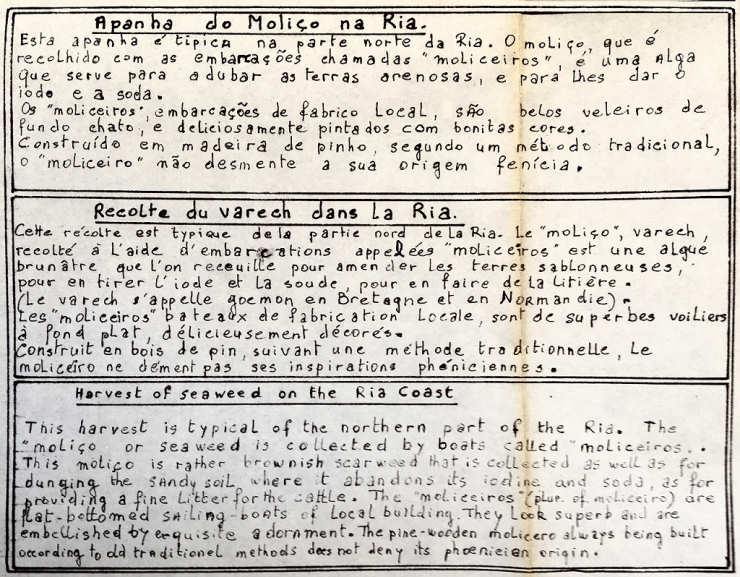 Apanha do Moliço na Ria.
Esta apanha é típica na parte norte da Ria. O moliço, que é
recolhido com as embarcações chamadas "moliceiros", é uma Alga
que serve para adubar as terras arenosas, e para lhes dar o
iodo e a soda.
Os "moliceiros", embarcações de fabrico Local, são belos veleiros de
fundo chato, e deliciosamente pintados com bonitas cores.
Construído em madeira de pinho, segundo um método tradicional,
o "moliceiro" não desmente a sua origem fenícia.
Recolte du varech dans La Ria.
Cette récolte est typique de la partie nord de la Ria. Le "moliço", varech,
recolté à L'aide d'embarcations appelées "moliceiros" est une algue
brunâtre que l'on receuille pour amender les terres sablonneuses,
pour en tirer L'iode et la soude, pour en faire de la Litière.
(Le varech s'appelle goemon en Bretagne et en Normandie).
Les "moliceiros" bateaux de fabrication Locale, sont de superbes voiliers
à fond plat, délicieusement décorés.
Construit en bois de pin, suivant une méthode traditionnelle, Le
moliceiro ne dément pas ses inspirations phéniciennes.
Harvest of seaweed on the Ria Coast
This harvest is typical of the northern part of the Ria. The
"moliço or seaweed is collected by boats called "moliceiros..
This moliço is rather brownish scarweed that is collected as well as for
dunging the sandy soil, where it abandons its iodine and soda, as for
providing a fine Litter for the cattle. The "moliceiros" (plur. of moliceiro) are
flat-bottomed sailing-boats of Local building. They Look superb and are
embellished by exquisite adornment. The pine-wooden molicero always being built
according to old traditionel methods does not deny its phoenicien origin.